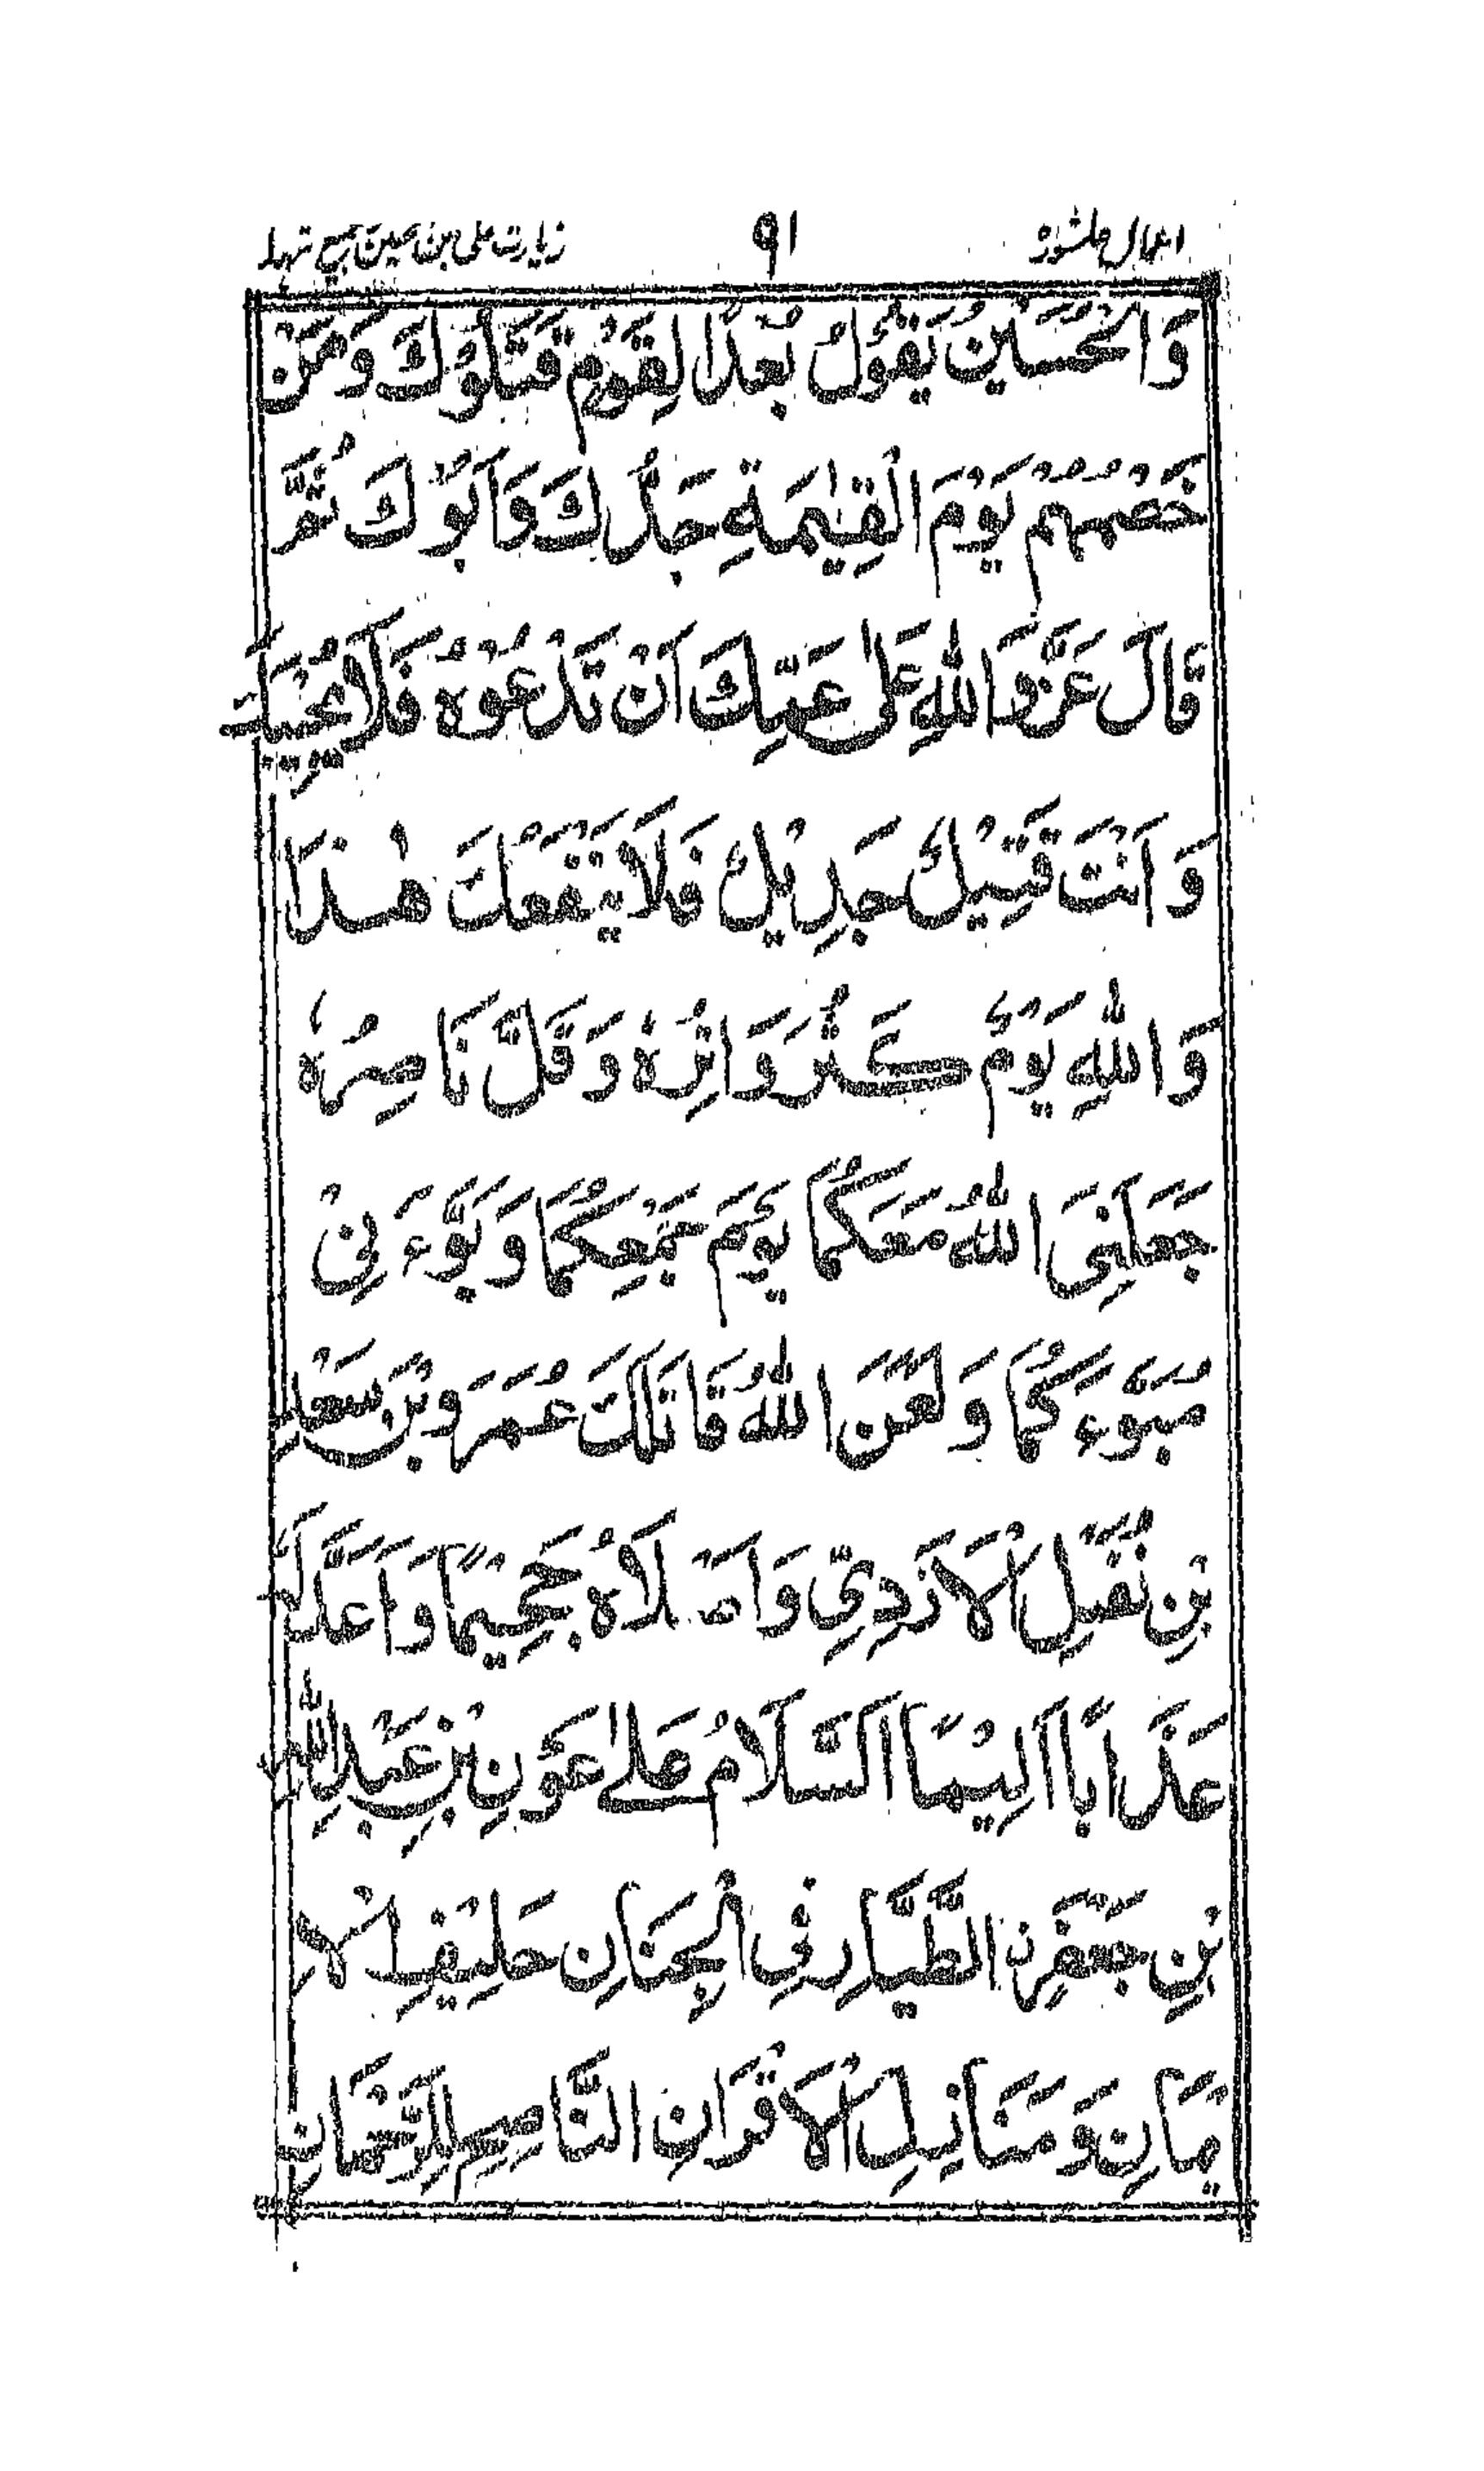 اعمال عاشورہ ٩١ زیارت علی بن الحسین جمیع شہدا
وَالْحُسَيْنُ يَقُوْلُ بُعْدًا لِقَوْمٍ قَتَلُوْكَ وَمَنْ
خَصْمُهُمْ يَوْمَ الْقِيٰمَةِ جَدُّكَ وَاَبُوْكَ ثُمَّ
قَالَ عَزَّ وَاللّٰهِ عَلٰى عَمِّكَ اَنْ تَدْعُوْهُ فَلَا يُجِيْبَكَ
وَاَنْتَ قَتِيْلٌ جَدِيْلٌ فَلَا يَنْفَعُكَ هٰذَا
وَاللّٰهِ يَوْمٌ كَثُرَ وَاتِرُهٗ وَقَلَّ نَاصِرُهٗ
جَعَلَنِيَ اللّٰهُ مَعَكُمَا يَوْمَ جَمْعِكُمَا وَبَوَّءَنِيْ
مُبَوَّءَكُمَا وَلَعَنَ اللّٰهُ قَاتِلَكَ عُمَرَو بْنَ سَعْدِ
بْنِ نُفَيْلِ الْاَزْدِيِّ وَاَصْلَاهُ جَحِيْمًا وَاَعَدَّ لَهٗ
عَذَابًا اَلِيْمًا اَلسَّلَامُ عَلٰى عَوْنِ بْنِ عَبْدِ اللّٰهِ
بْنِ جَعْفَرِنِ الطَّيَّارِ فِي الْجِنَانِ حَلِيْفِ الْاِ
يْمَانِ وَمُنَازِلِ الْاَقْرَانِ النَّاصِحِ لِلرَّحْمَانِ